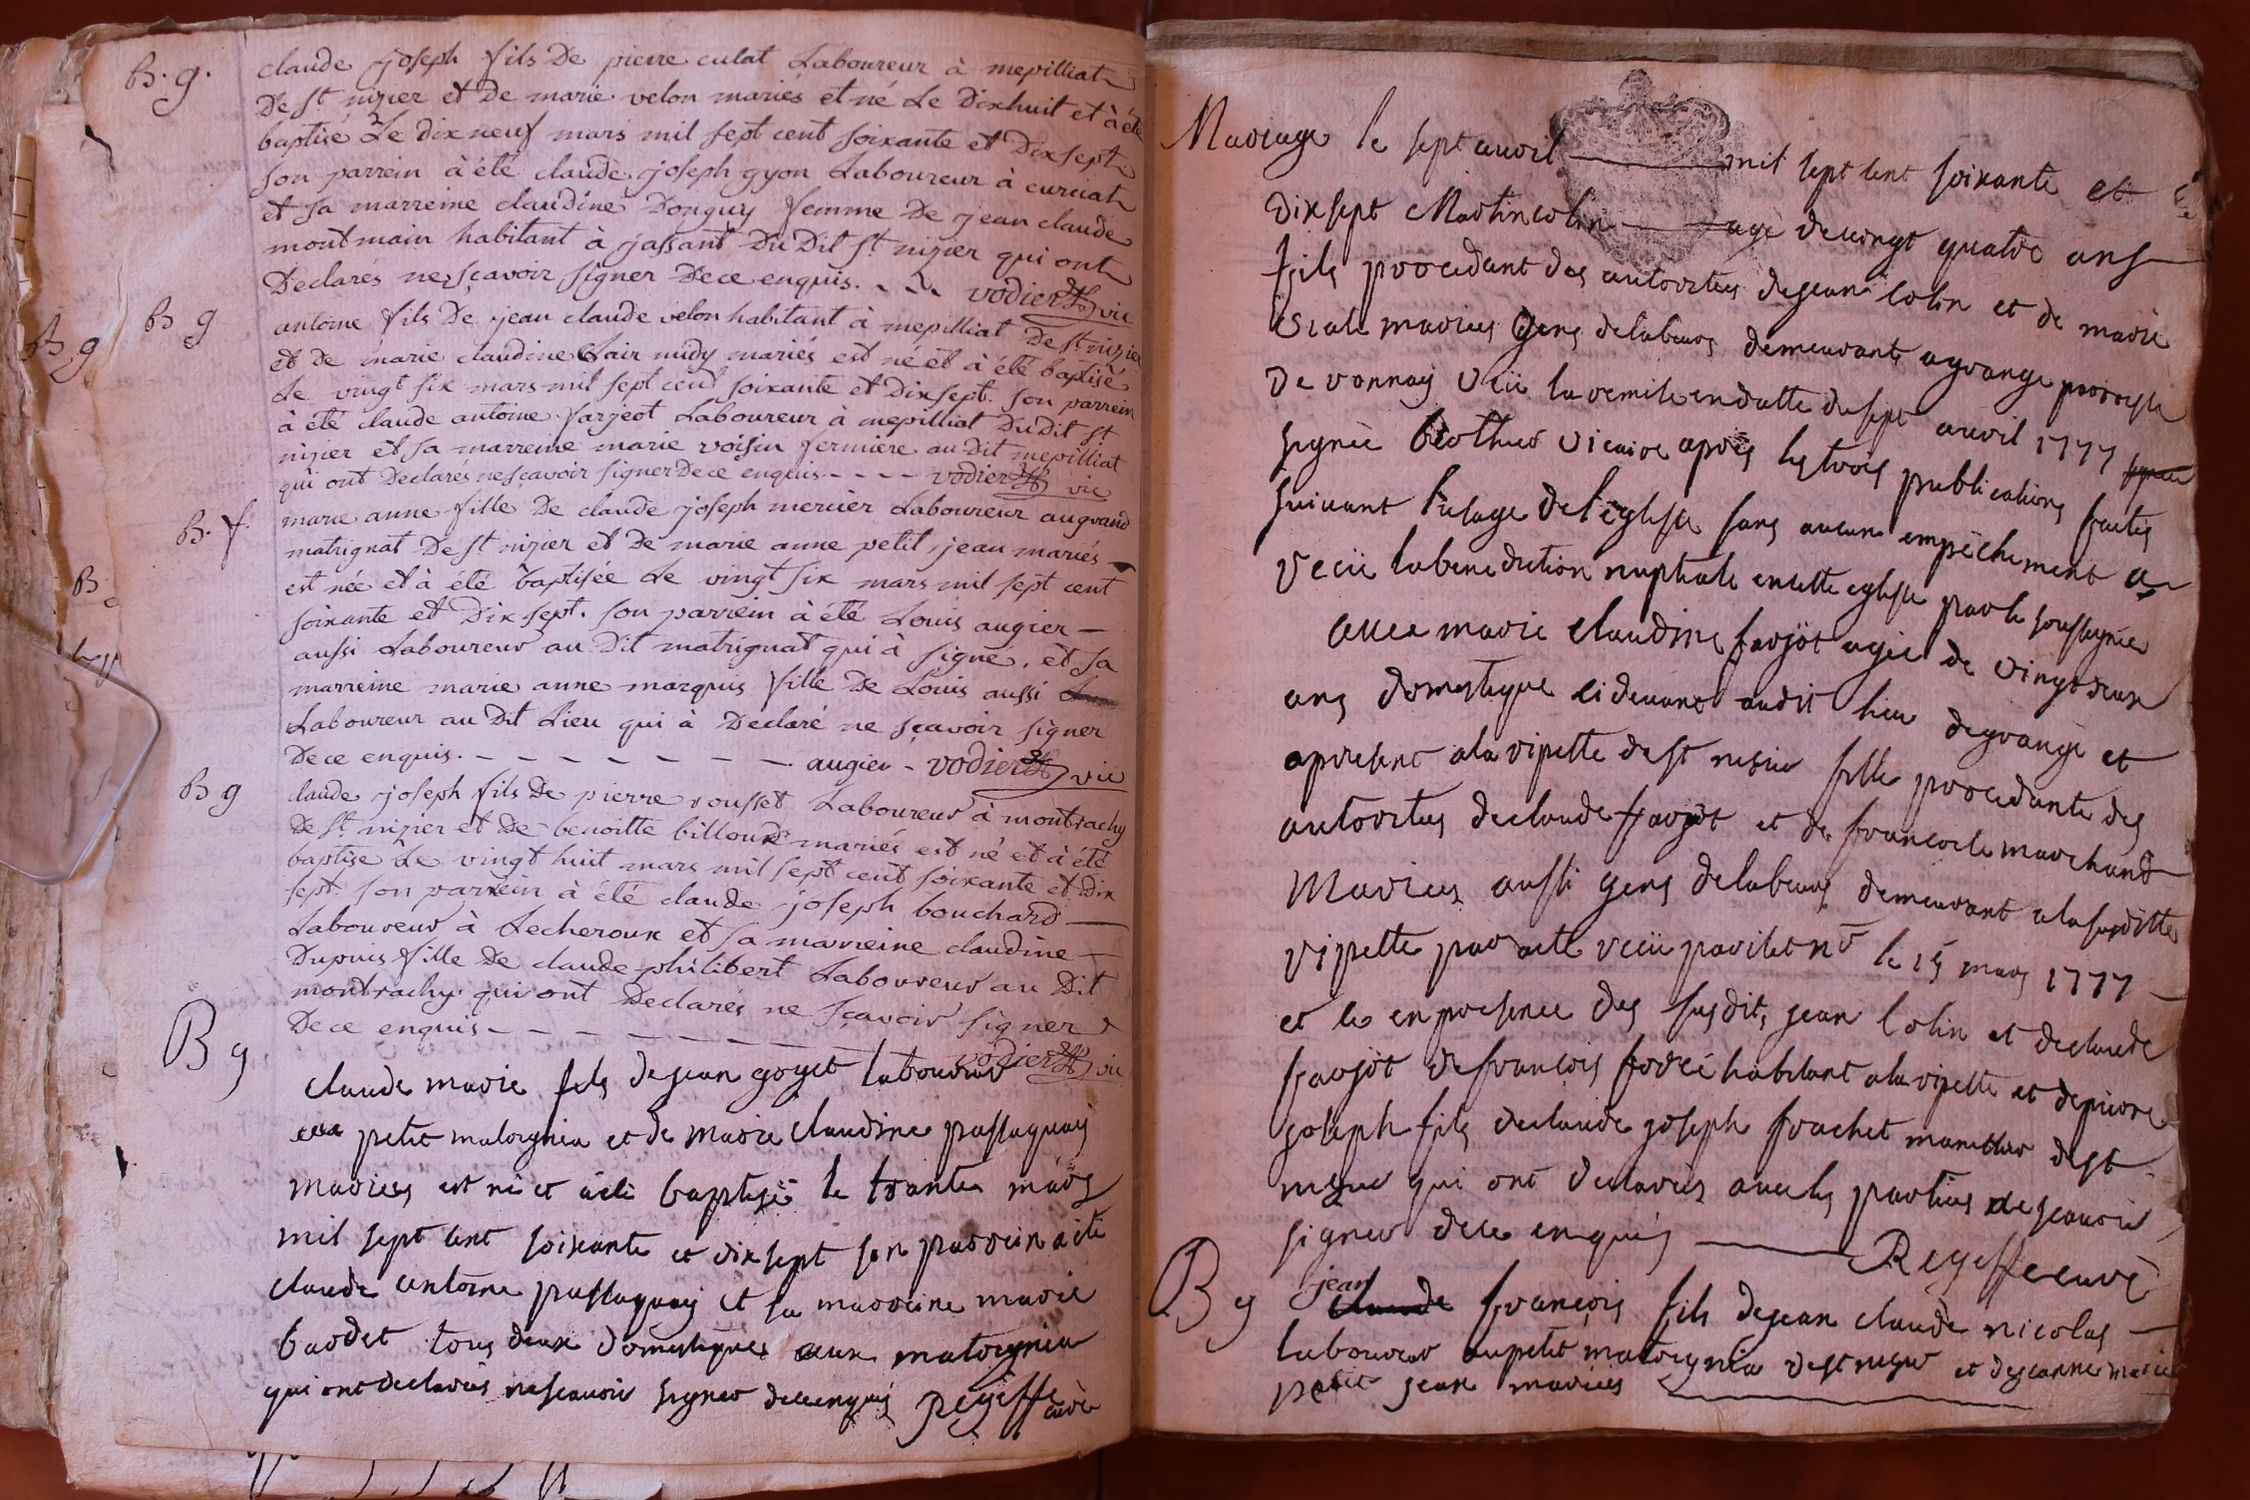 B. g.
claude joseph fils De pierre culat Laboureur à mepilliat
De st nizier et De marie velon mariés et né Le Dixhuit et à été
baptisé Le dix neuf mars mil sept cent soixante et Dixsept
son parrein à été claude joseph gyon Laboureur à curciat
et sa marreine claudine Donguy femme De jean claude
montmain habitant à jassant Du Dit st nizier qui ont
Declarés ne sçavoir signer De ce enquis. vodier vic
B g
antoine fils De jean claude velon habitant à mepilliat De st nizier
et de marie claudine Clair midy mariés est né et à été baptisé
Le vingt six mars mil sept cent soixante et Dixsept. son parrein
à été claude antoine farjeot Laboureur à mepilliat Du Dit st
nizier et sa marreine marie voisin fermière au dit mepilliat
qui ont Declarés ne sçavoir signer De ce enquis - - - - vodier vic
B. f.
marie anne fille De claude joseph mercier Laboureur au grand
matrignat De st nizier et De marie anne petit jean mariés
est née et à été baptisée Le vingt six mars mil sept cent
soixante et Dix sept. son parrein à été Louis augier —
aussi Laboureur au Dit matrignat qui à signé. et sa
marreine marie anne marquis fille De Louis aussi
Laboureur au Dit Lieu qui à Declaré ne sçavoir signer
De ce enquis. - - - - - - - augier - vodier vic
B g
claude joseph fils De pierre rousset Laboureur à montrachy
De st nizier et De benoitte billoud mariés est né et à été
baptisé Le vingt huit mars mil sept cent soixante et dix
sept son parrein à été claude joseph bouchard —
Laboureur à Lecheroux et sa marreine claudine —
Dupuis fille De claude philibert Laboureur au Dit
montrachy qui ont Declarés ne sçavoir signer
De ce enquis - - - - - - - vodier vic
B g
claude marie fils de jean goyet laboureur
petit matrignia et de marie claudine passaquay
maries est né et à été baptisé le trante mars
mil sept cent soixante et dix sept son parrein a été
claude antoine passaquay et sa marreine marie
bardet tous deux domestiques aux matrignia
qui ont declarés ne scavoir signer de ce enquis Regeffe curé
Mariage le sept avril — mil sept cent soixante et
dix sept Martin colin — agé de vingt quatre ans
fils procedant des autorites de jean colin et de marie
mariés gens de labeurs demeurants a grange parroisse
de vonnay veü la remise en datte du sept avril 1777
signée vicaire après les trois publications faites
suivant l'usage de l'église sans aucun empêchement a
reçu la benediction nuptiale en cette eglise par le soussigné
avec marie claudine farjot agée de vingt deux
ans domestique ci devant audit lieu de grange et
apresent a la vipette de st nisier fille procedante des
autorites de claude farjot et de francoise marchand
Mariés aussi gens de labeurs demeurant a la susditte
vipette par acte reçu par ilet nre le 15 mars 1777 —
et ce en presence des susdits jean Colin et de claude
farjot de francois habitant a la vipette et de pierre
joseph fils de claude joseph frachet de st
nisier qui ont declarés avec les parties ne scavoir
signer de ce enquis — Regeffe curé
B g
jean francois fils de jean claude nicolas —
laboureur au petit matrignia de st nisier et de jeanne marie
petit jean mariés —